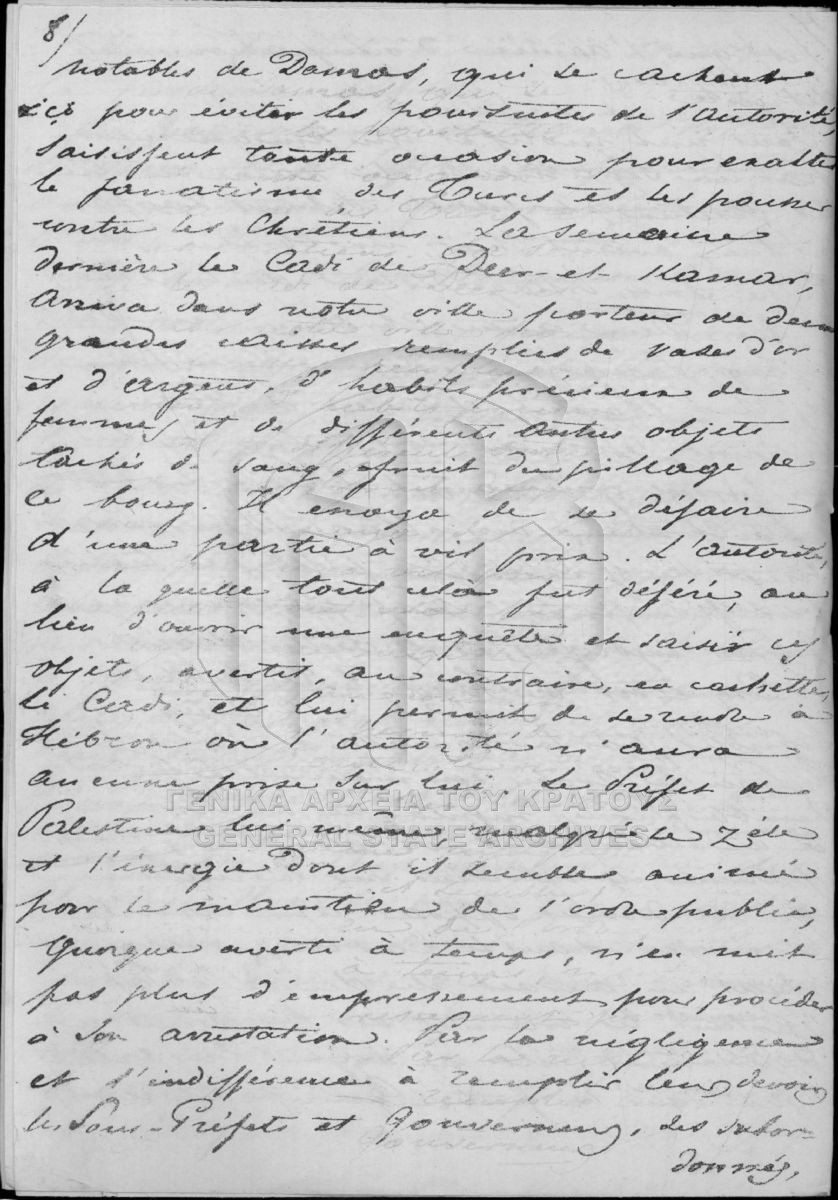 8/
notables de Damas, qui se cachent
ici pour éviter les poursuites de l'autorité
saisissent toute occasion pour exalter
le fanatisme des Turcs et les pousser
contre les Chrétiens. La semaine
dernière le Cadi de Deer-el-Kamar,
arriva dans notre ville porteur de deux
grandes caisses remplies de vases d'or
et d'argent, d'habits précieux de
femmes et de différents autres objets
tachés de sang, fruit du pillage de
ce bourg. Il essaya de se défaire
d'une partie à vil prix. L'autorité,
à la quelle tout cela fut déféré, au
lieu d'ouvrir une enquête et saisir ces
objets, avertit, au contraire, en cachette,
le Cadi, et lui permit de se rendre à
Hébron où l'autorité n'aura
aucune prise sur lui. Le Préfet de
ΓΕΝΙΚΑ ΑΡΧΕΙΑ ΤΟΥ ΚΡΑΤΟΥΣ
Palestine lui même, malgré le zéle
GENERAL STATE ARCHIVES
et l'énergie dont il semble animé
pour le maintien de l'ordre public,
quoique averti à temps, n'en mit
pas plus d'empressement pour procéder
à son arrestation. Par la négligence
et l'indifférence à remplir leurs devoirs
les Sous-Préfets et Gouverneurs, ses subor-
donnés,